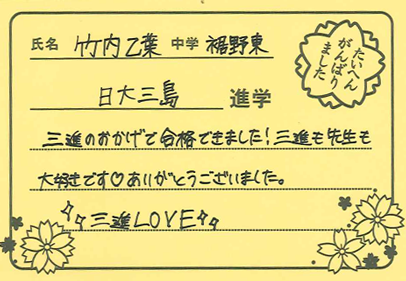 氏名 竹内乙葉 中学 裾野東
日大三島 進学
たいへん
がんばり
ました
三進のおかげで合格できました!三進も先生も
大好きです♡ありがとうございました。
三進LOVE